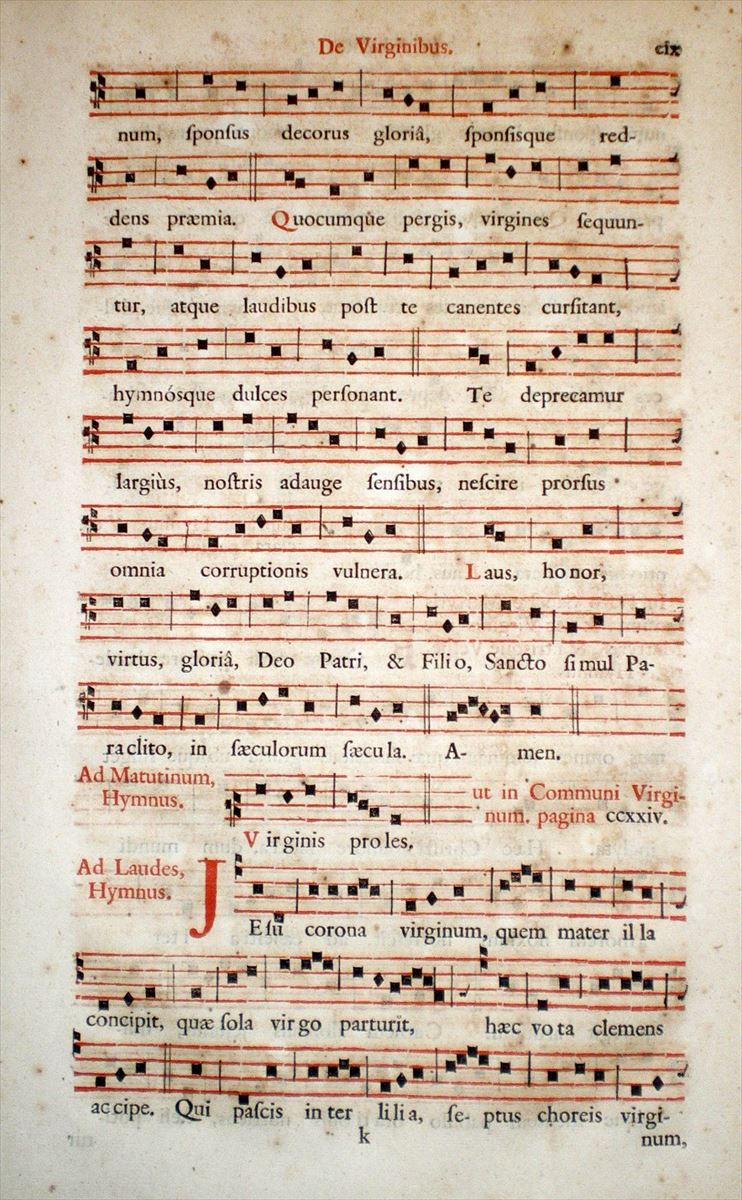 De Virginibus. cix
num, ſponſus decorus gloriâ, ſponſisque red-
dens præmia. Quocumque pergis, virgines ſequun-
tur, atque laudibus poſt te canentes curſitant,
hymnósque dulces perſonant. Te deprecamur
largiùs, noſtris adauge ſenſibus, neſcire prorſus
omnia corruptionis vulnera. Laus, honor,
virtus, gloriâ, Deo Patri, & Filio, Sancto ſimul Pa-
raclito, in ſæculorum ſæcula. A- men.
Ad Matutinum,
Hymnus.
Virginis proles.
ut in Communi Virgi-
num. pagina ccxxiv.
Ad Laudes,
Hymnus.
JEſu corona virginum, quem mater illa
concipit, quæ ſola virgo parturit, hæc vota clemens
accipe. Qui paſcis inter lilia, ſe- ptus choreis virgi-
k num,